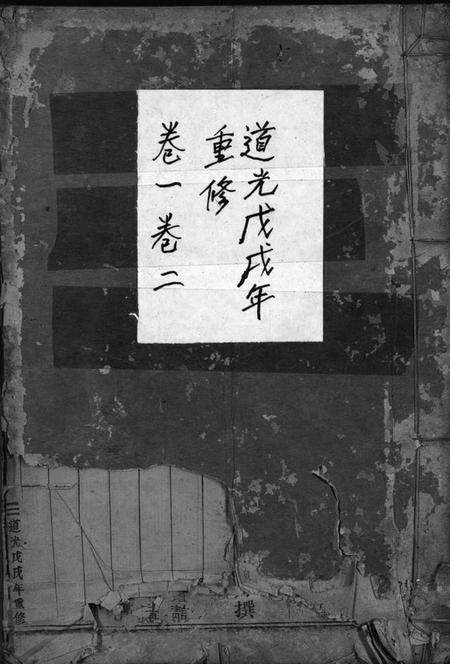 道光戊戌年
重修
卷一卷二
撰
道光戊戌年重修